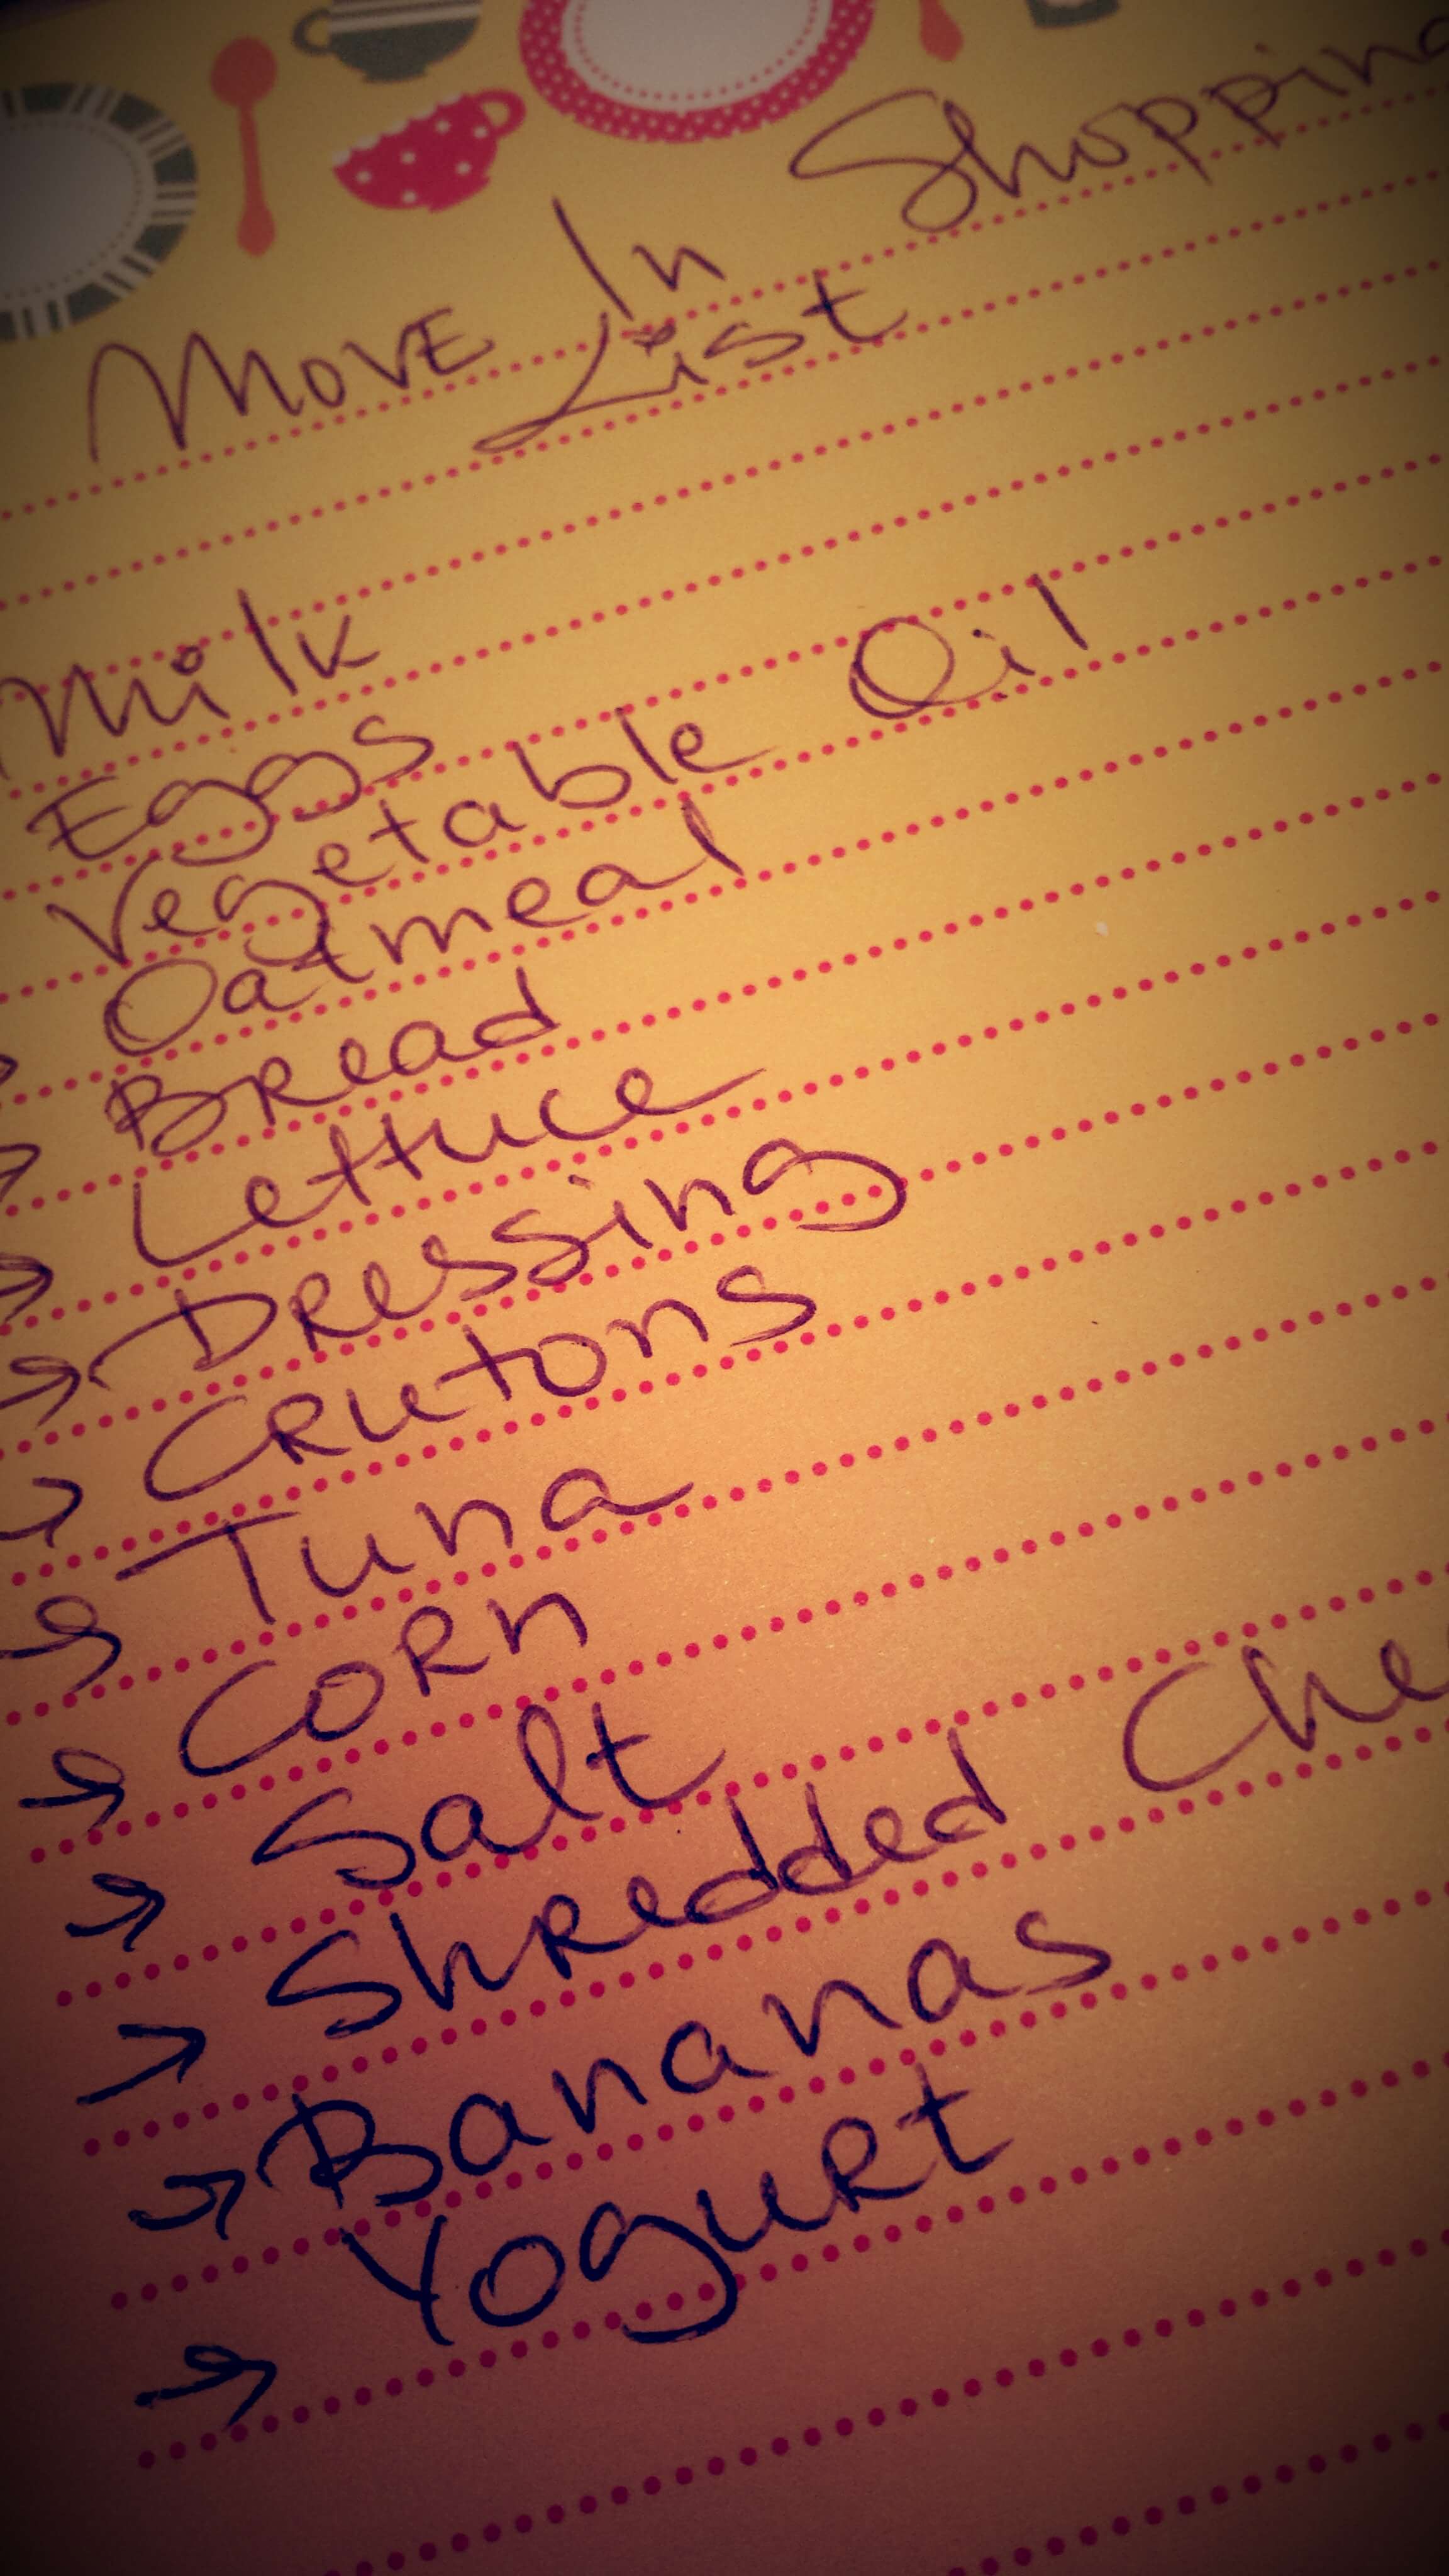 Move In Shopping
List
Milk
Eggs
Vegetable Oil
Oatmeal
Bread
Lettuce
Dressing
Crutons
Tuna
Corn
Salt
Shredded Che
Bananas
Yogurt